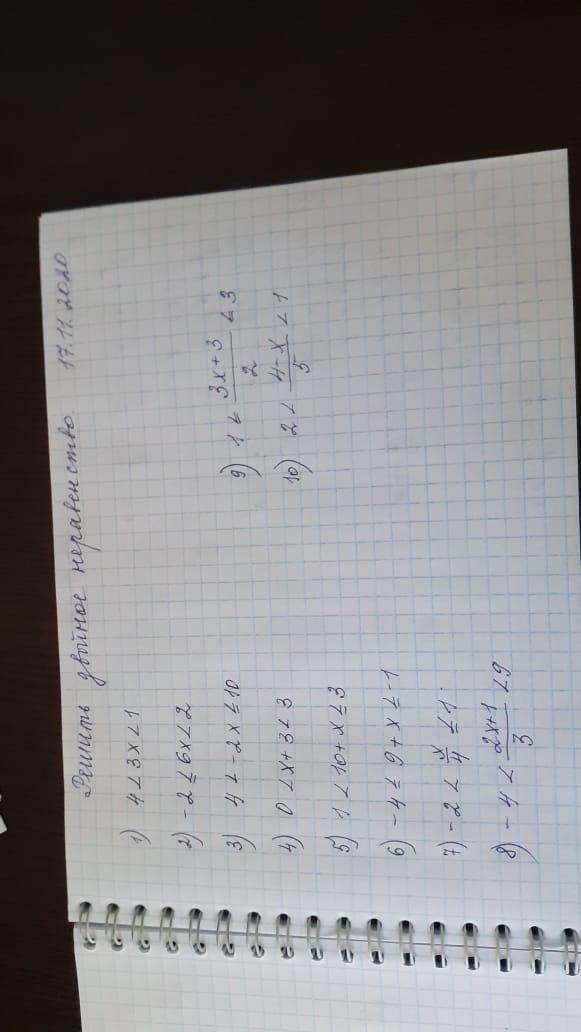 Решить двойное неравенство 17.11.2020
1) 4 < 3x < 1
2) -2 ≤ 6x < 2
3) 4 < -2x ≤ 10
4) 0 < x+3 < 3
5) 1 < 10+x ≤ 3
6) -4 ≤ 9+x ≤ -1
7) -2 < x/4 ≤ 1
8) -4 < (2x+1)/3 < 9
9) 1 < (3x+3)/2 < 3
10) 2 < (4-x)/5 < 1